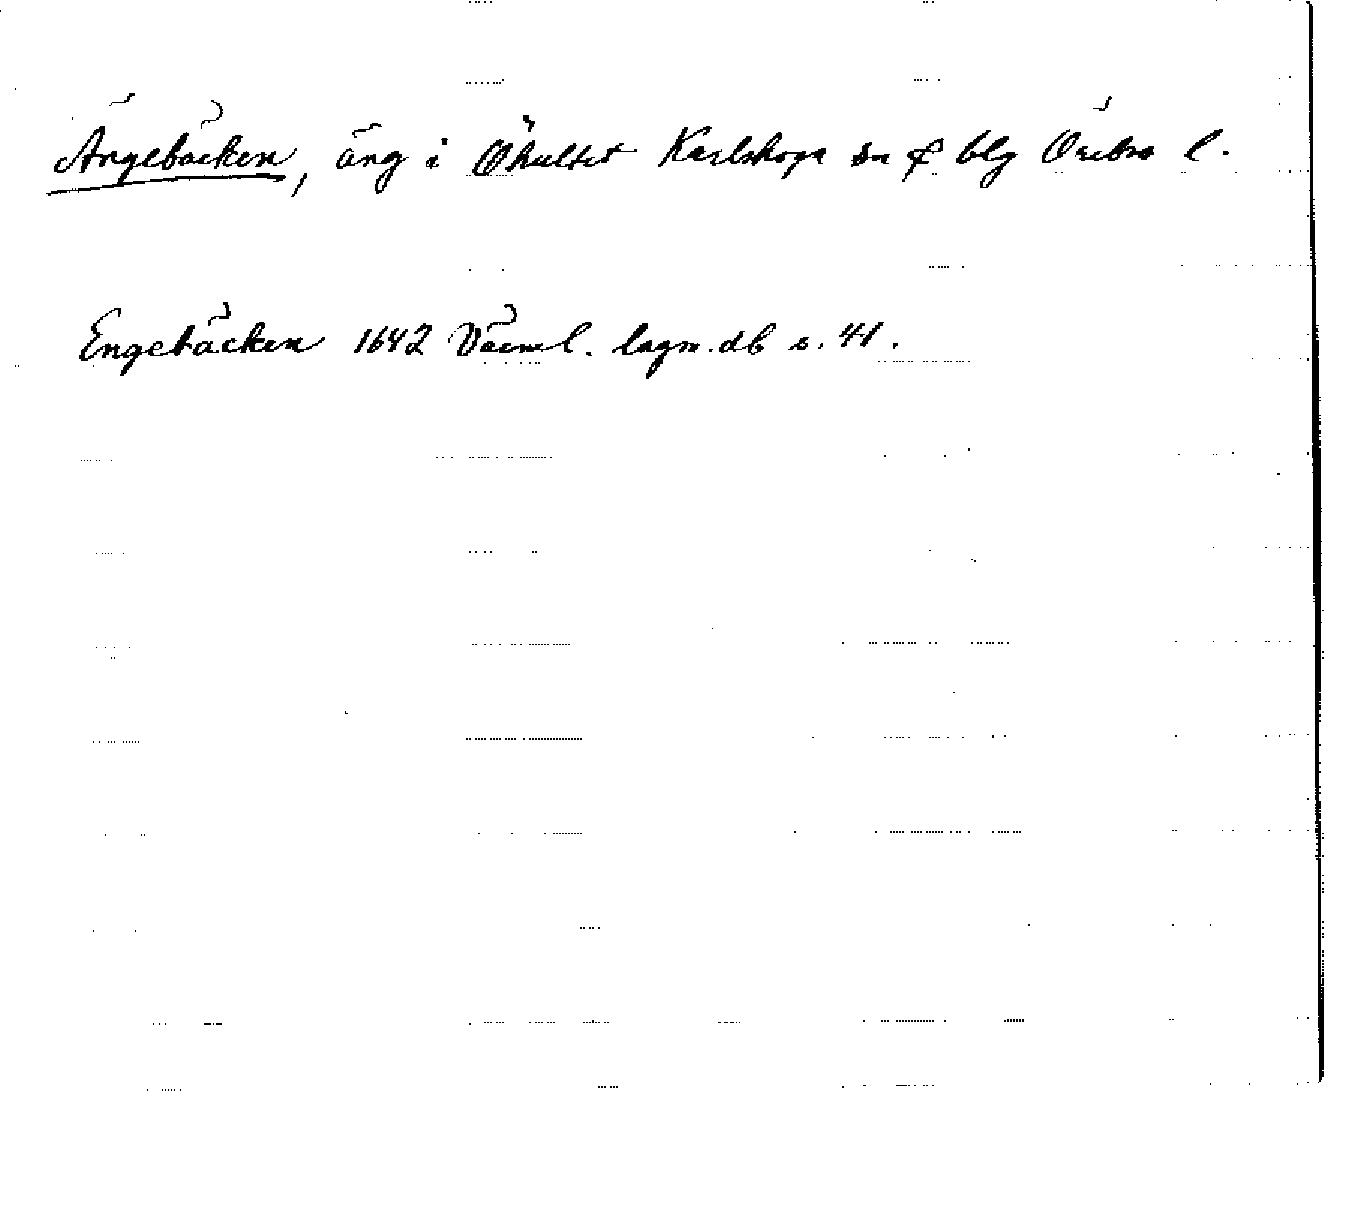 Ängebäcken, äng i Ökultet Karlskoga sn & blg Örebro l.
Engebäcken 1642 Värml. lagm. db s. 41.